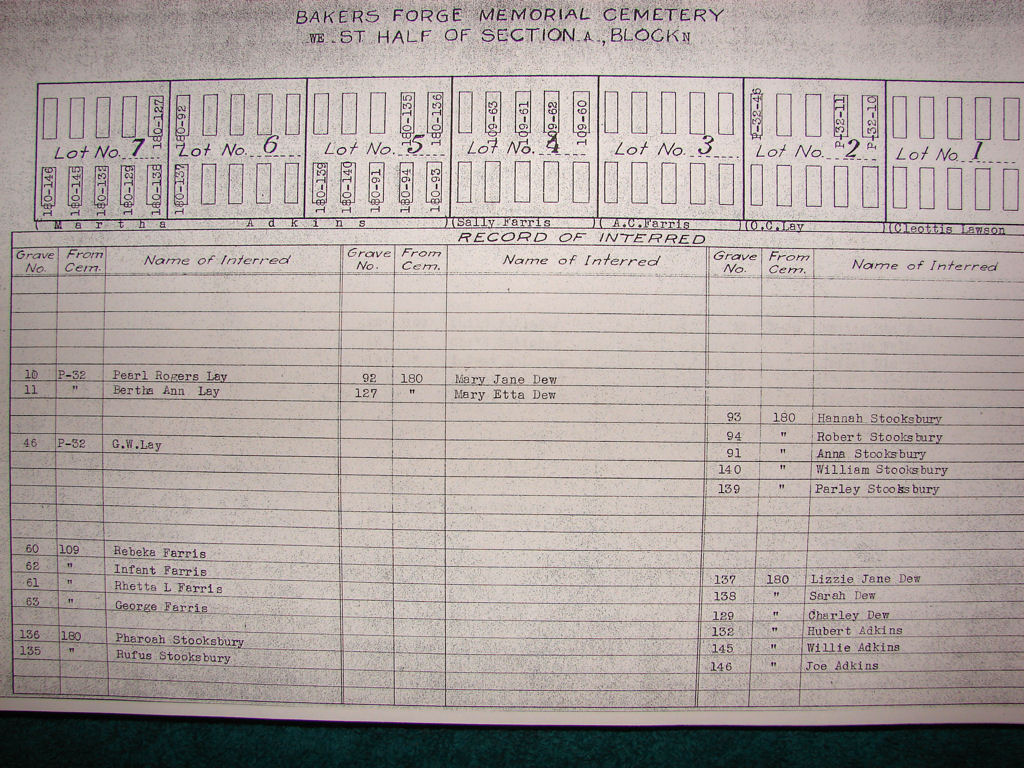 BAKERS FORGE MEMORIAL CEMETERY
WE ST HALF OF SECTION A , BLOCK N
180-127 180-92 180-135 180-136 109-63 109-61 109-62 109-60 P-32-46 P-32-11 P-32-10
Lot No. 7 Lot No. 6 Lot No. 5 Lot No. 4 Lot No. 3 Lot No. 2 Lot No. 1
180-146 180-145 180-132 180-129 180-138 180-137 180-139 180-140 180-91 180-94 180-93
( Martha Adkins )(Sally Farris )( A.C.Farris )(O.C.Lay )(Cleottis Lawson
RECORD OF INTERRED
Grave No. From Cem. Name of Interred Grave No. From Cem. Name of Interred Grave No. From Cem. Name of Interred
10 P-32 Pearl Rogers Lay 92 180 Mary Jane Dew
11 " Bertha Ann Lay 127 " Mary Etta Dew
93 180 Hannah Stooksbury
94 " Robert Stooksbury
46 P-32 G.W.Lay
91 " Anna Stooksbury
140 " William Stooksbury
139 " Parley Stooksbury
60 109 Rebeka Farris
62 " Infant Farris
61 " Rhetta L Farris 137 180 Lizzie Jane Dew
63 " George Farris 138 " Sarah Dew
129 " Charley Dew
136 180 Pharoah Stooksbury 132 " Hubert Adkins
135 " Rufus Stooksbury 145 " Willie Adkins
146 " Joe Adkins